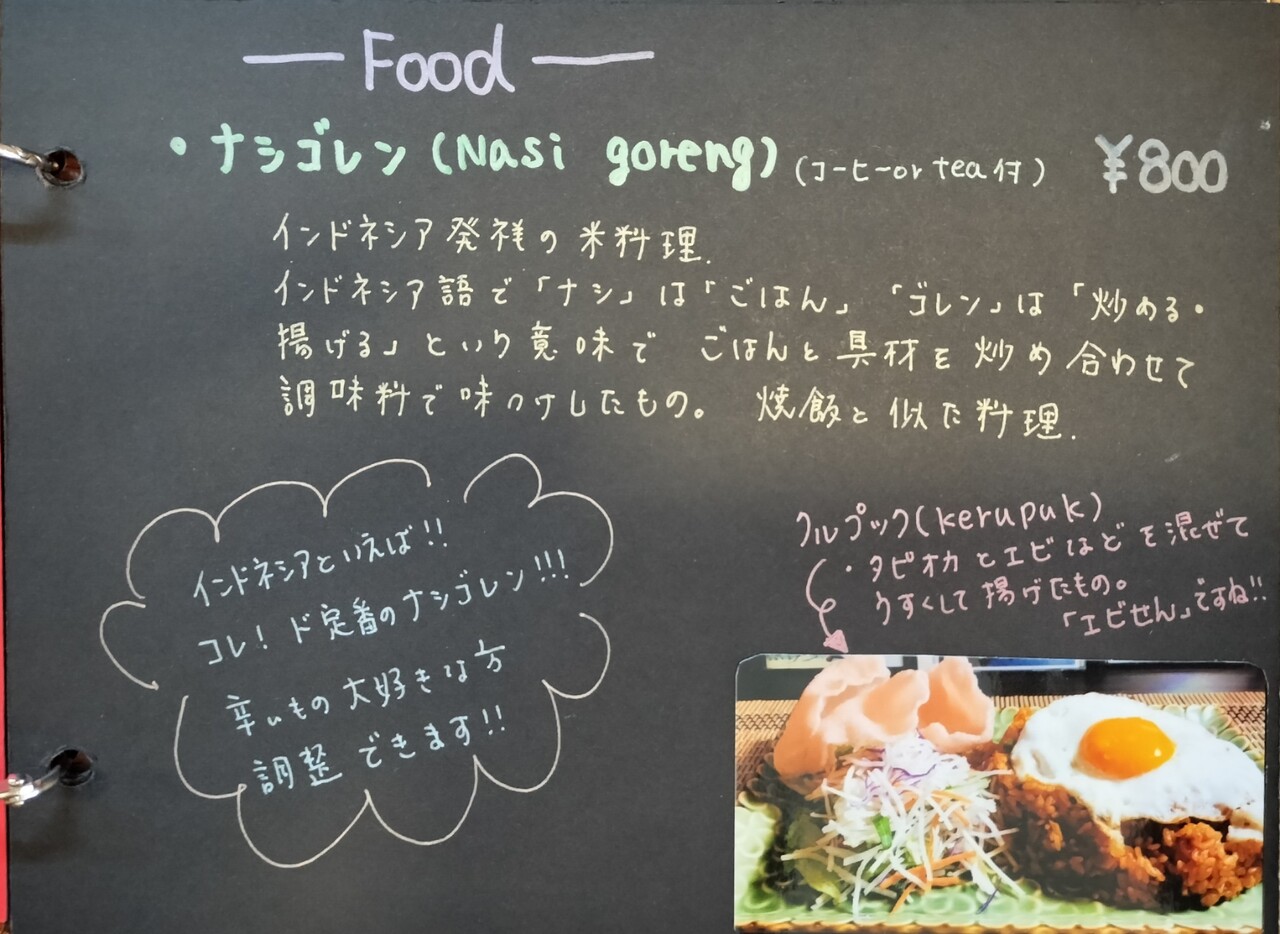 Food
・ナシゴレン(Nasi goreng)(コーヒーor tea付) ¥800
インドネシア発祥の米料理.
インドネシア語で「ナシ」は「ごはん」「ゴレン」は「炒める・
揚げる」という意味で ごはんと具材を炒め合わせて
調味料で味つけしたもの。 焼飯と似た料理.
インドネシアといえば!!
コレ! ド定番のナシゴレン!!!
辛いもの大好きな方
調整できます!!
クルプック(kerupuk)
・タピオカとエビなどを混ぜて
うすくして揚げたもの。
「エビせん」ですね!!